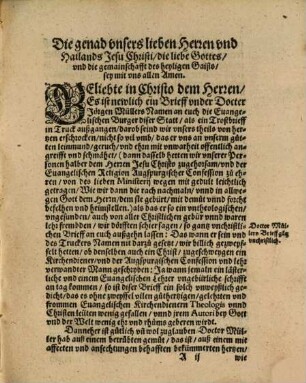 Die genad vnsers lieben Herren vnd
Hailands Jesu Christi, die liebe Gottes,
vnd die gemainschafft des heyligen Gaists,
sey mit vns allen Amen.
GEliebte in Christo dem Herren,
Es ist newlich ein Brieff vnder Doctor
Jörgen Müllers Namen an euch die Euange-
lischen Burger diser Statt, als ein Trostbrieff
in Truck außgangen, darob seind wir vnsers theils von her-
tzen erschrocken, nicht so vil vmb, das er vns an vnserm gůten
leinmund, geruch, vnd ehrn mit vnwarheit offentlich an-
greifft vnd schmähet, dann dasselb hetten wir vnserer Per-
sonen halber dem Herren Jesu Christo zugehorsam, vnd der
Euangelischen Religion Augspurgischer Confession zů eh-
ren, von des lieben Hānsfliterti wegen mit gedult leichtlich
getragen, Wie wir dann die rach nachmaln, vnnd in allwe-
gen Gott dem Herrn, dem sie gebürt, mit demůt vnnd forcht
befelhen vnd heimstellen,
vngefunden, auch von aller Christlichen gebür vnnd waren
lehr frembden, wir dörfften schier sagen, so gantz vnchristli-
chen Brieff an euch außgehn lassen. Das wann er sein vnd
des Truckers Namen nit darzů gesetzt, wir billich gezweyf-
felt hetten, ob denselben auch ein Christ, zugeschweygen ein
Kirchendiener, vnd der Augspurgischen Confession vnd lehr
verwandter Mann geschriben,
licher vnd einem Euangelischen Lehrer vngebürliche schafft
an tag kommen, so ist diser Brieff ein solch vnwarhafft ge-
dicht, das es ohne zweyfel vilen gůthertzigen, gelehrten vnd
frommen Euangelischen Kirchendienern Theologis vnnd
Christen leüten wenig gefallen, vnnd jrem Autori bey Gott
vnd der Welt wenig eht vnd rhůms geberen wirdt.
Dannether ist gůtlich vñ wol zuglauben Doctor Mül-
ler hab auß einem betrübten gemüt, das ist, auß einem mit
affecten vnd anfechtungen behafften bekümmerten hertzen,
A ij wie
Doctor Mül-
lers Brieff gātz
vnchristlich.